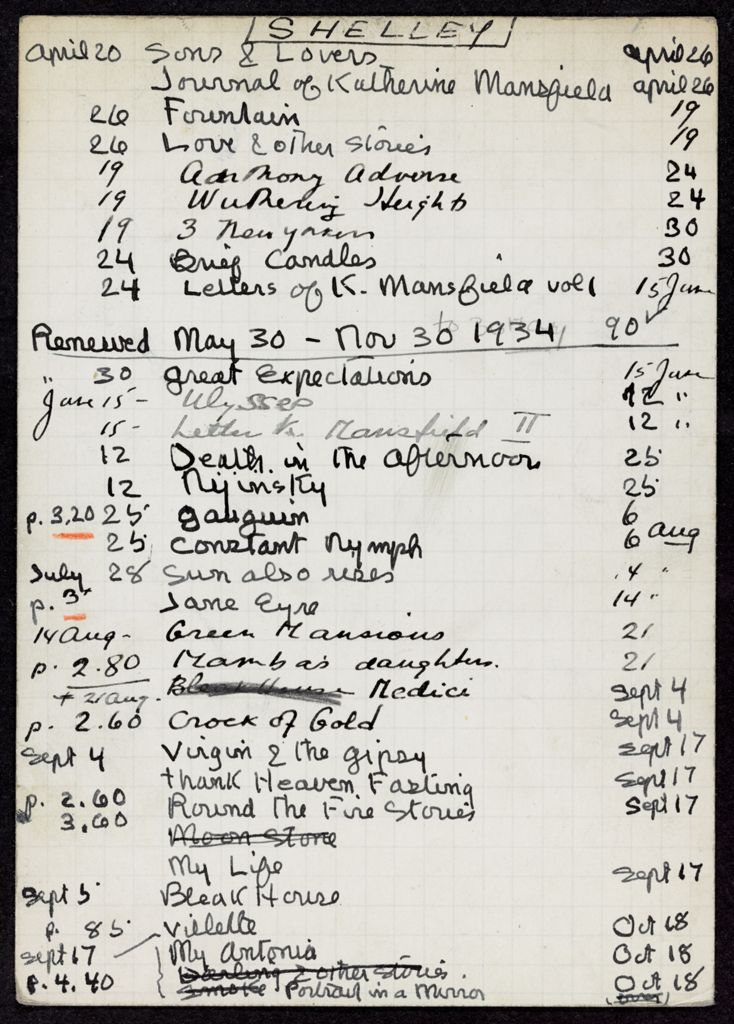 SHELLEY
April 20 Sons & Lovers april 26
Journal of Katherine Mansfield april 26
26 Fountain 19
26 Love & other stories 19
19 Anthony Adverse 24
19 Wuthering Heights 24
19 3 New yorkers 30
24 Brief Candles 30
24 Letters of K. Mansfield vol 1 15 June
Renewed May 30 - Nov 30 1934 90
" 30 great Expectations 15 June
June 15 - Ulysses 12 "
15 - Letters K. Mansfield II 12 "
12 Death in the afternoon 25
12 Nijinsky 25
p. 3,20 25 gauguin 6
25 Constant Nymph 6 aug
July 28 Sun also rises 4 "
p. 3 Jane Eyre 14 "
14 Aug - Green Mansions 21
p. 2.80 Mamba's daughters. 21
+ 21 aug. Bleak House Medici Sept 4
p. 2.60 Crock of Gold Sept 4
Sept 4 Virgin & the gipsy Sept 17
thank Heaven Fasting Sept 17
p. 2.60 Round the Fire Stories Sept 17
3.60 Moon Stone
My Life Sept 17
Sept 5 Bleak House
p. 85 Villette Oct 18
Sept 17 My Antonia Oct 18
p. 4.40 Darling & other stories.
Smoke Portrait in a Mirror Oct 18